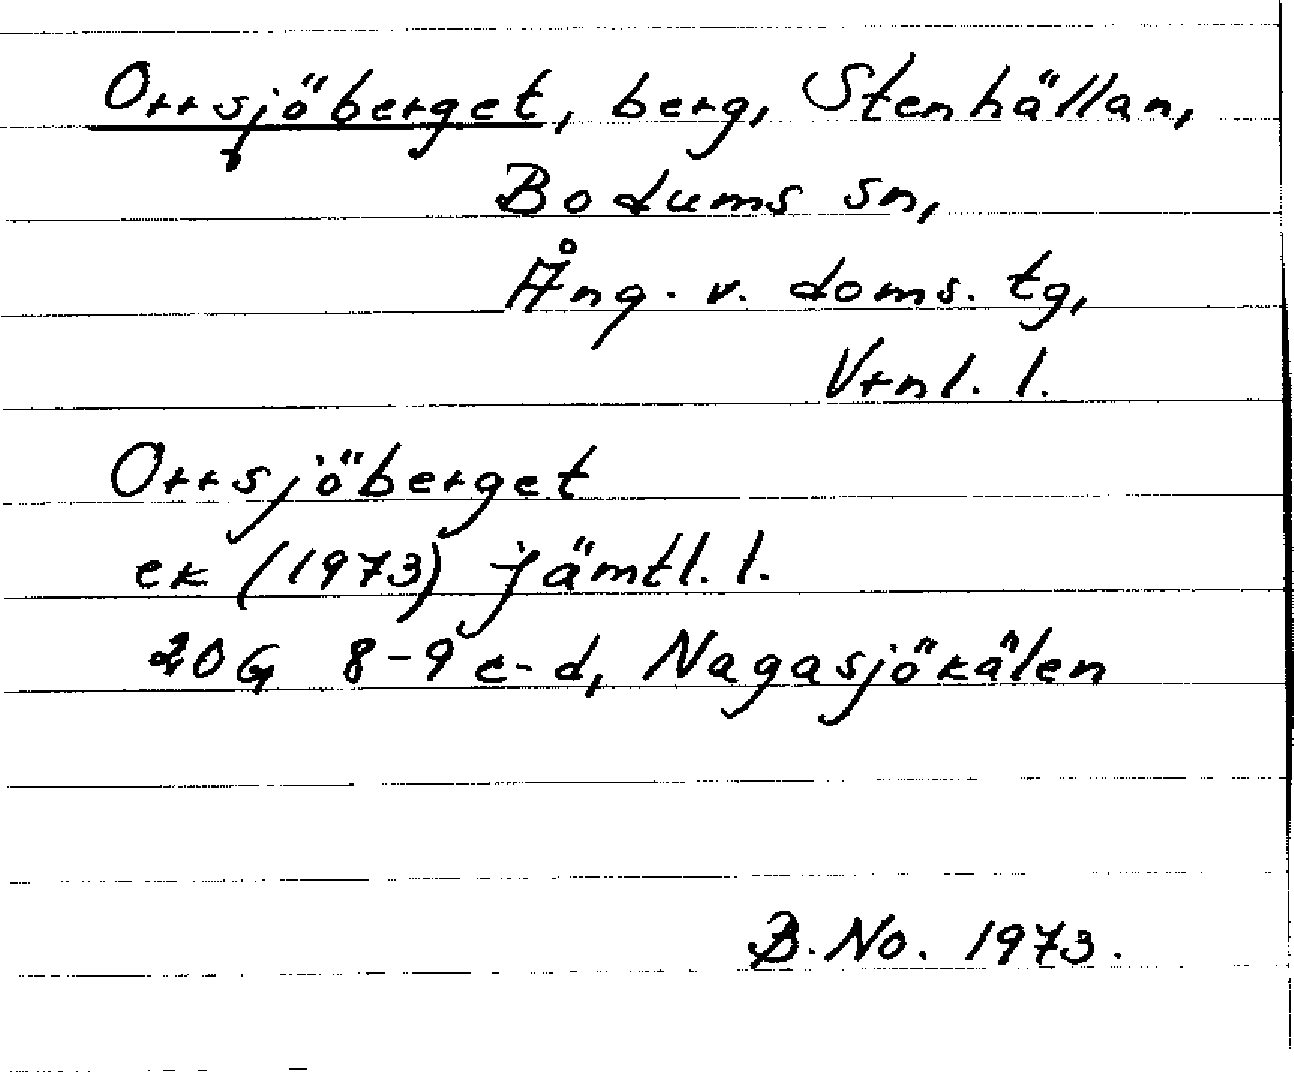 Orrsjöberget, berg, Stenhällan,
Bodums sn,
Ång. v. doms. tg,
Vrnl. l.
Orrsjöberget
ek (1973) Jämtl. l.
20G 8-9 c-d, Nagasjökälen
B. No. 1973.